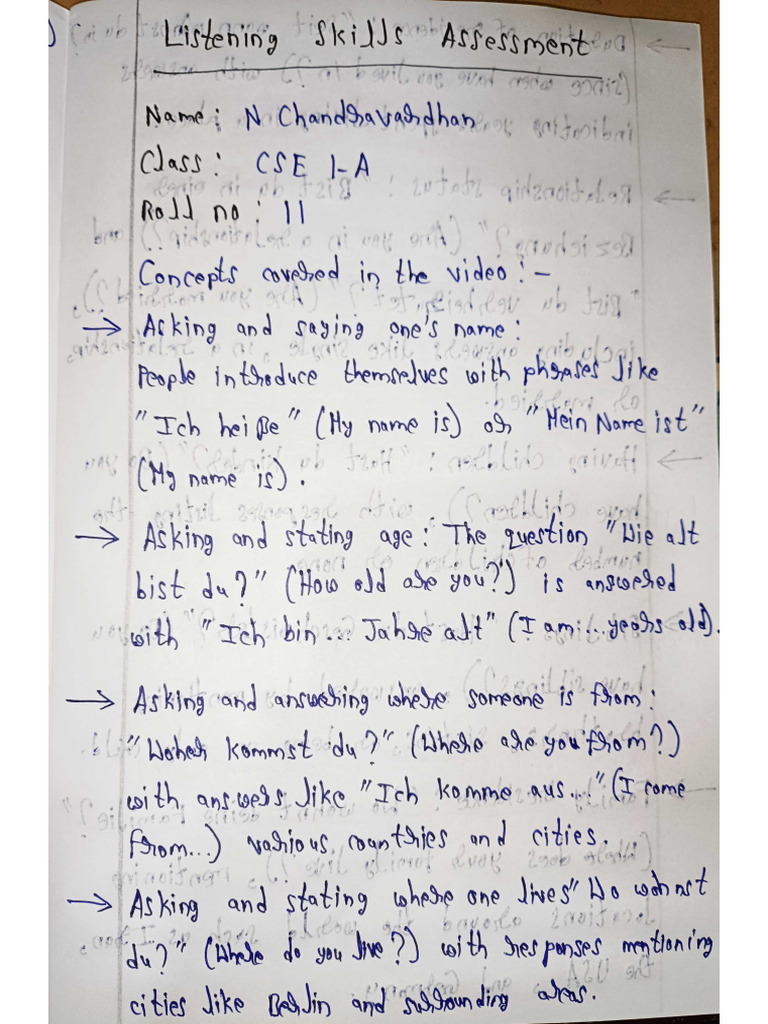 Listening Skills Assessment
Name: N Chandravardhan
Class: CSE 1-A
Roll no: 11
Concepts covered in the video:-
→ Asking and saying one's name:
People introduce themselves with phrases like
"Ich heiße" (My name is) or "Mein Name ist"
(My name is).
→ Asking and stating age: The question "Wie alt
bist du?" (How old are you?) is answered
with "Ich bin... Jahre alt" (I am...years old).
→ Asking and answering where someone is from:
"Woher kommst du?" (Where are you from?)
with answers like "Ich komme aus..." (I come
from...) various countries and cities.
→ Asking and stating where one lives "Wo wohnst
du?" (Where do you live?) with responses mentioning
cities like Berlin and surrounding areas.